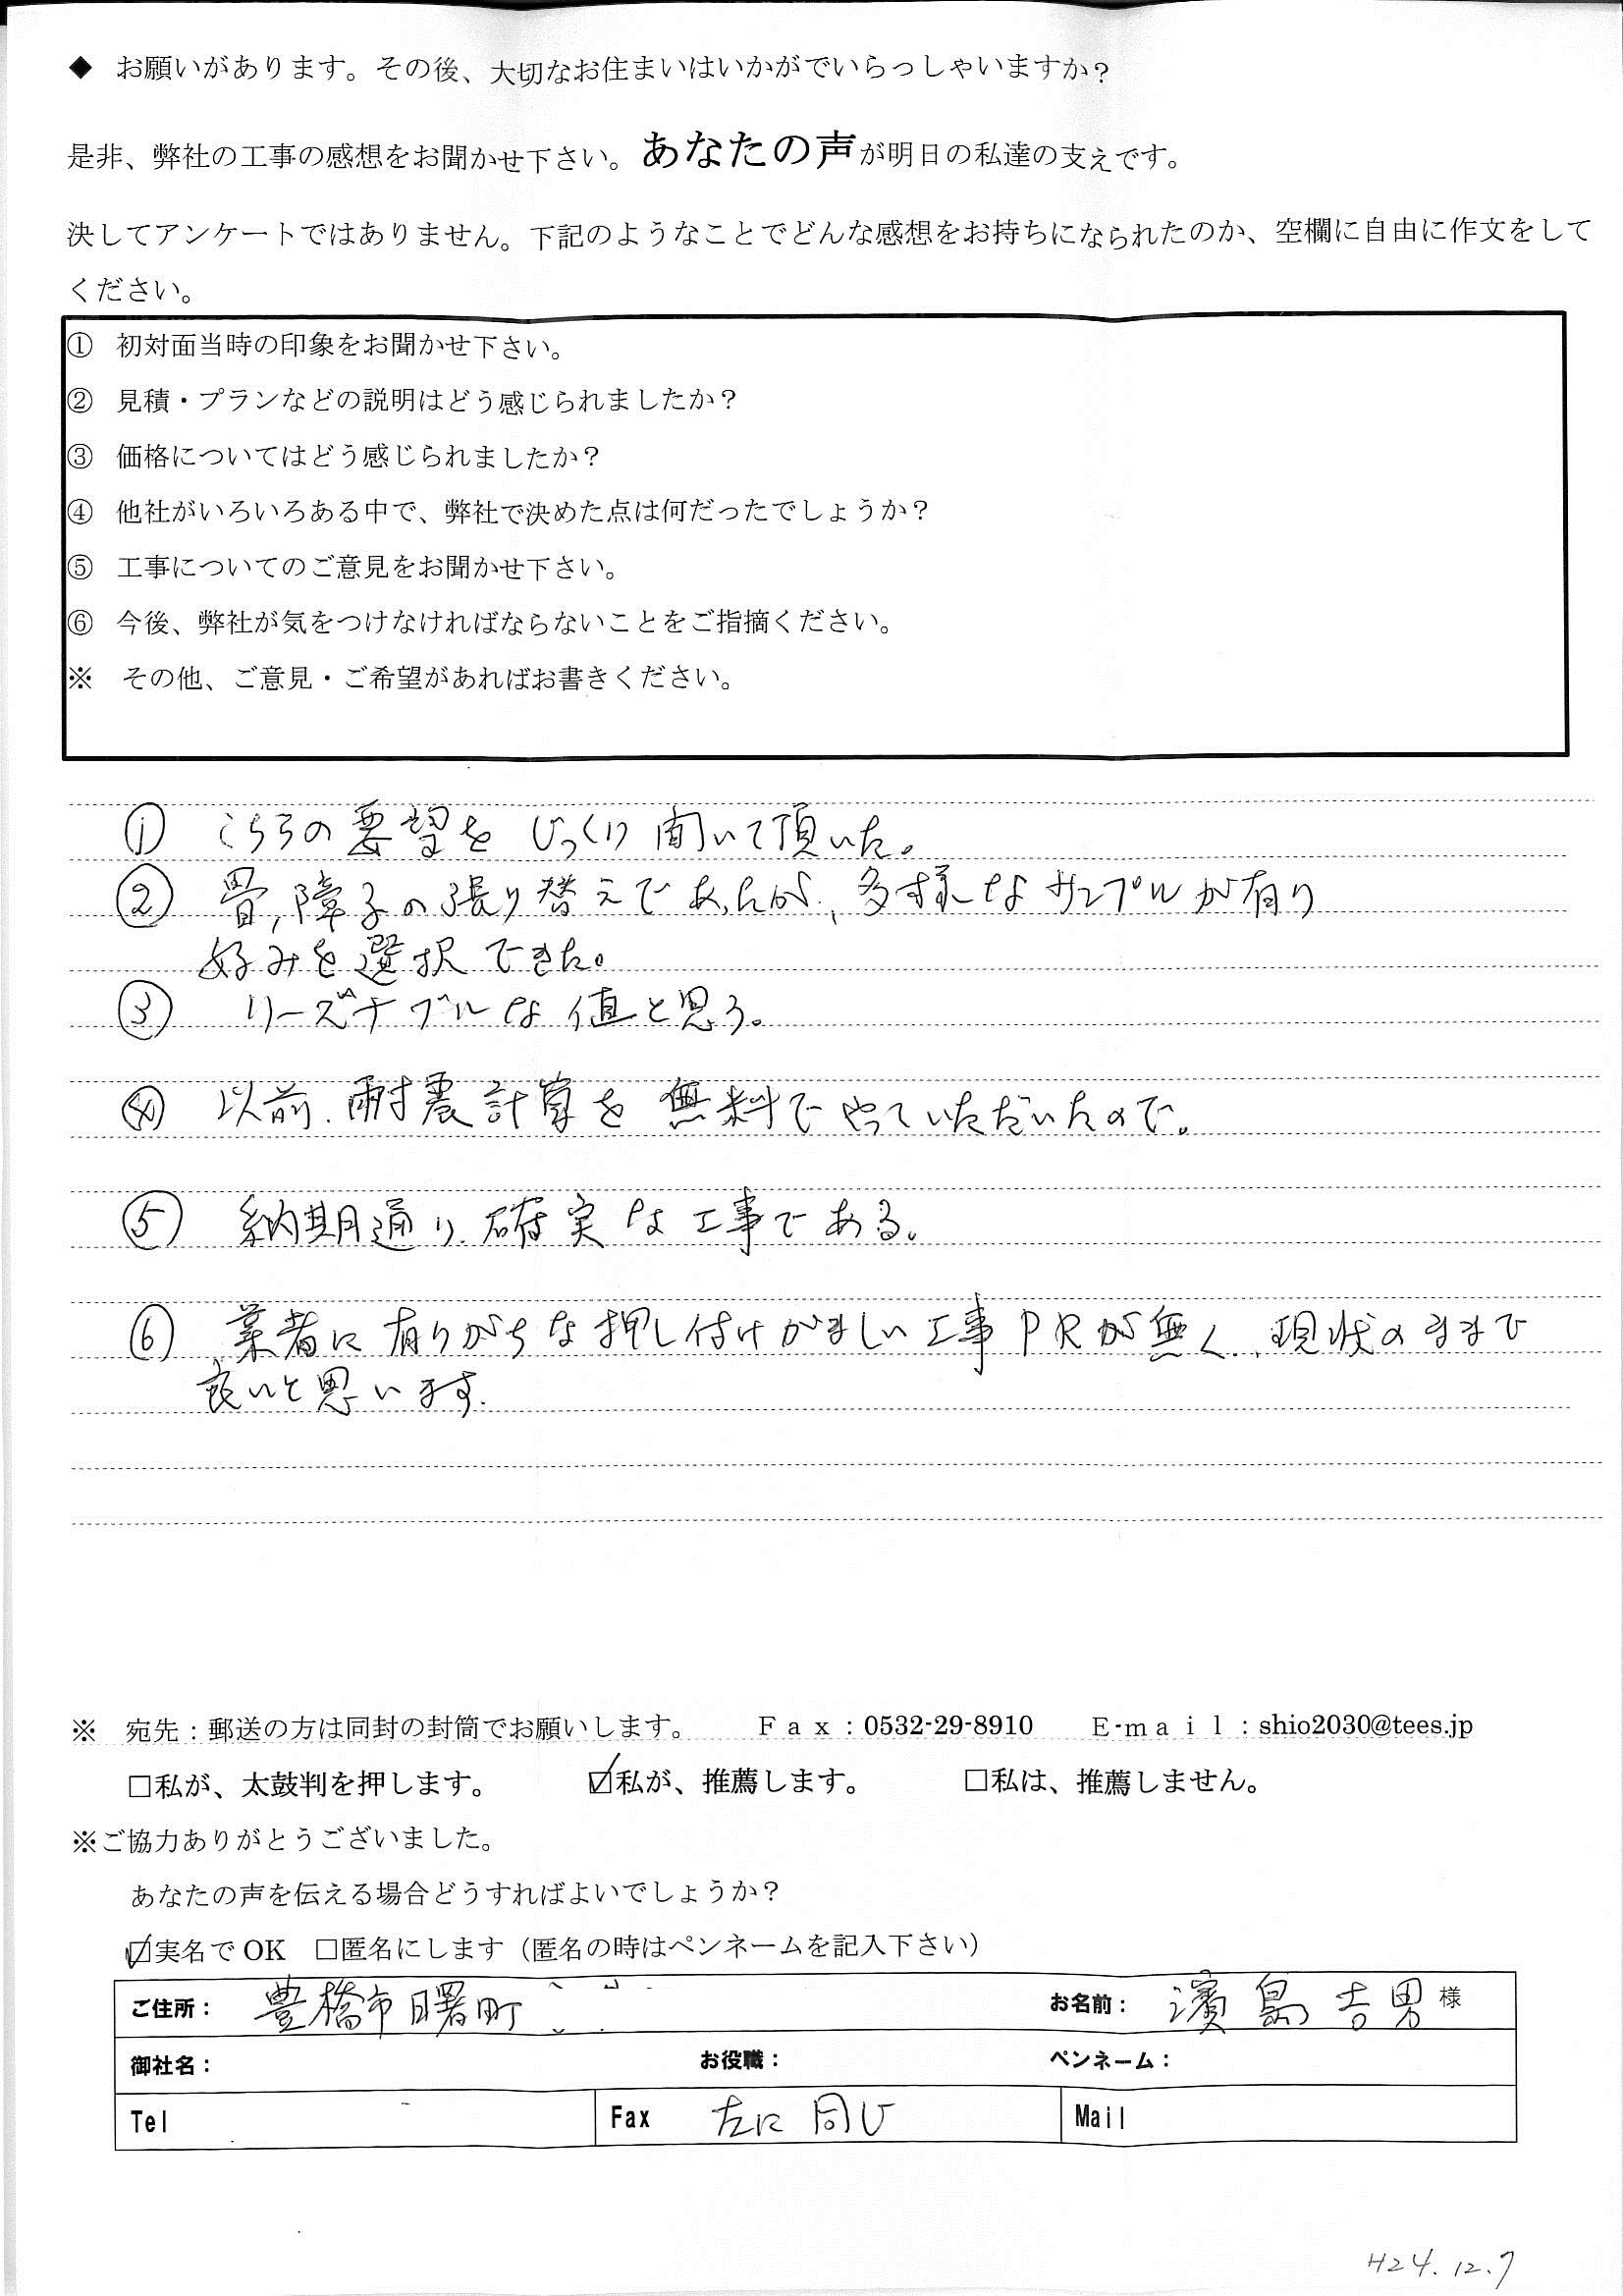 ◆ お願いがあります。その後、大切なお住まいはいかがでいらっしゃいますか？
是非、弊社の工事の感想をお聞かせ下さい。あなたの声が明日の私達の支えです。
決してアンケートではありません。下記のようなことでどんな感想をお持ちになられたのか、空欄に自由に作文をして
ください。
① 初対面当時の印象をお聞かせ下さい。
② 見積・プランなどの説明はどう感じられましたか？
③ 価格についてはどう感じられましたか？
④ 他社がいろいろある中で、弊社で決めた点は何だったでしょうか？
⑤ 工事についてのご意見をお聞かせ下さい。
⑥ 今後、弊社が気をつけなければならないことをご指摘ください。
※ その他、ご意見・ご希望があればお書きください。
① こちらの要望をじっくり聞いて頂いた。
② 畳,障子の張り替えであったが、多様なサンプルが有り
好みを選択できた。
③ リーズナブルな値と思う。
④ 以前、耐震計算を無料でやっていただいたので。
⑤ 納期通り、確実な工事である。
⑥ 業者に有りがちな押し付けがましい工事PRが無く、現状のままで
良いと思います.
※ 宛先：郵送の方は同封の封筒でお願いします。 Ｆａｘ：0532-29-8910 Ｅ-ｍａｉｌ：shio2030@tees.jp
□私が、太鼓判を押します。 ☑私が、推薦します。 □私は、推薦しません。
※ご協力ありがとうございました。
あなたの声を伝える場合どうすればよいでしょうか？
☑実名でOK □匿名にします（匿名の時はペンネームを記入下さい）
ご住所： 豊橋市曙町 お名前： 濱島吉男 様
御社名： お役職： ペンネーム：
Tel Fax 左に同じ Mail
H24.12.7